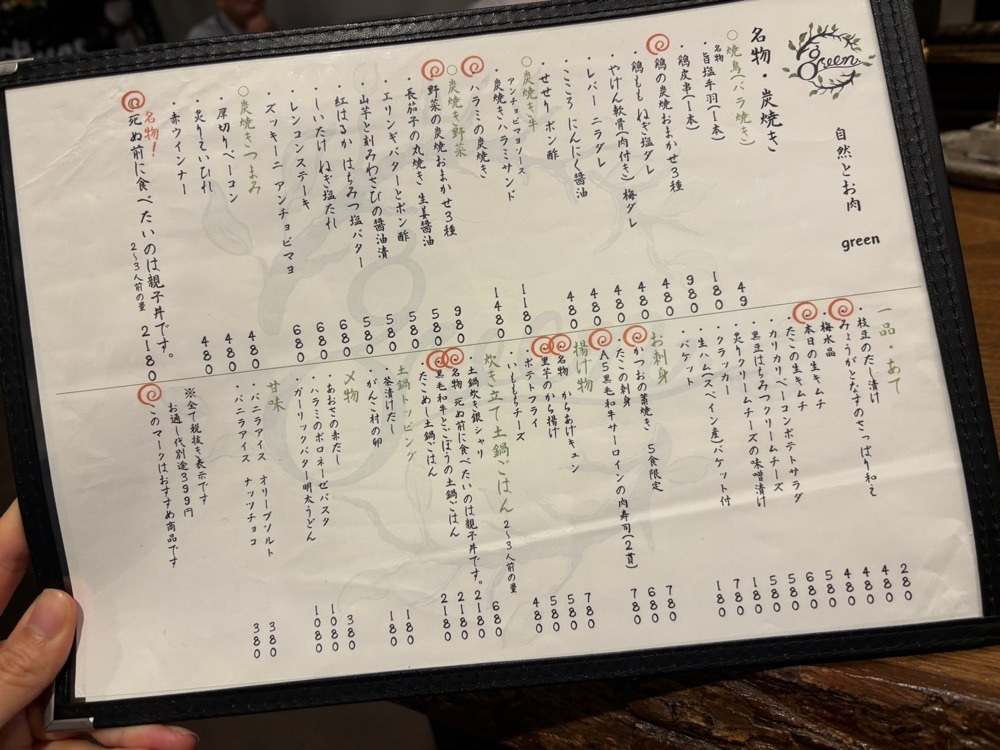 green
自然とお肉 green
名物・炭焼き
○焼鳥(バラ焼き)
・名物 旨塩手羽(一本) 49
・鶏皮串(一本) 180
・鶏の炭焼おまかせ3種 980
・鶏もも ねぎ塩ダレ 480
・やげん軟骨(肉付き)梅ダレ 480
・レバー ニラダレ 480
・こころ にんにく醤油 480
・せせりポン酢 480
○炭焼き牛
アンチョビマヨソース
・炭焼きハラミサンド 1180
・ハラミの炭焼き 1480
○炭焼き野菜
・野菜の炭焼おまかせ3種 980
・長茄子の丸焼き 生姜醤油 580
・エリンギ バターとポン酢 580
・山芋と刻みわさびの醤油漬 580
・紅はるか はちみつ塩バター 580
・しいたけ ねぎ塩だれ 680
・レンコンステーキ 680
・ズッキーニ アンチョビマヨ 680
○炭焼きつまみ
・厚切りベーコン 480
・炙りえいひれ 480
・赤ウインナー 480
名物!
死ぬ前に食べたいのは親子丼です。
2〜3人前の量 2180
一品・あて
・枝豆のだし漬け 280
・みょうがとなすのさっぱり和え 480
・梅水晶 480
・本日の生キムチ 480
・たこの生キムチ 580
・カリカリベーコンポテトサラダ 680
・黒豆はちみつクリームチーズ 580
・炙りクリームチーズの味噌漬け 580
・クラッカー 180
・生ハム(スペイン産)バケット付 780
・バケット 180
お刺身
・かつおの藁焼き 5食限定 780
・たこの刺身 680
・A5黒毛和牛サーロインの肉寿司(2貫) 780
揚げ物
・名物 からあげキュン 780
・里芋のから揚げ 580
・ポテトフライ 580
・いももちチーズ 480
炊き立て土鍋ごはん 2〜3人前の量
・土鍋炊き銀シャリ 680
・名物 死ぬ前に食べたいのは親子丼です。 2180
・黒毛和牛とごぼうの土鍋ごはん 2180
・たこめし土鍋ごはん 2180
土鍋トッピング
・茶漬けだし 180
・がんこ村の卵 180
〆物
・あおさの赤だし 380
・ハラミのボロネーゼパスタ 1080
・ガーリックバター明太うどん 1080
甘味
・バニラアイス オリーブソルト 380
・バニラアイス ナッツチョコ 380
※全て税抜き表示です
お通し代別途399円
このマークはおすすめ商品です